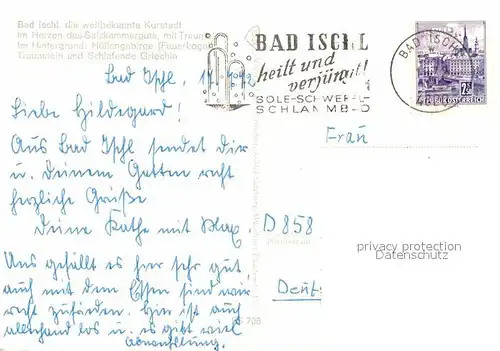 Bad Ischl, die weltbekannte Kurstadt
im Herzen des Salzkammerguts, mit Traun
Im Hintergrund: Höllengebirge (Feuerkogel)
Traunstein und Schlafende Griechin
Bad Ischl, 17.
BAD ISCHL
heilt und
verjüngt!
SOLE-SCHWEFEL
SCHLAMMBAD
BAD ISCHL
REPUBLIK ÖSTERREICH
Liebe Hildegard!
Aus Bad Ischl sendet Dir
u. Deinem Gatten recht
herzliche Grüße
Deine Käthe mit Max.
Uns gefällt es hier sehr gut,
auch mit dem Essen sind wir
recht zufrieden. Hier ist auch
allerhand los u. es gibt viel
Abwechslung.
Frau
D 858
Deuts
privacy protection
Datenschutz
708